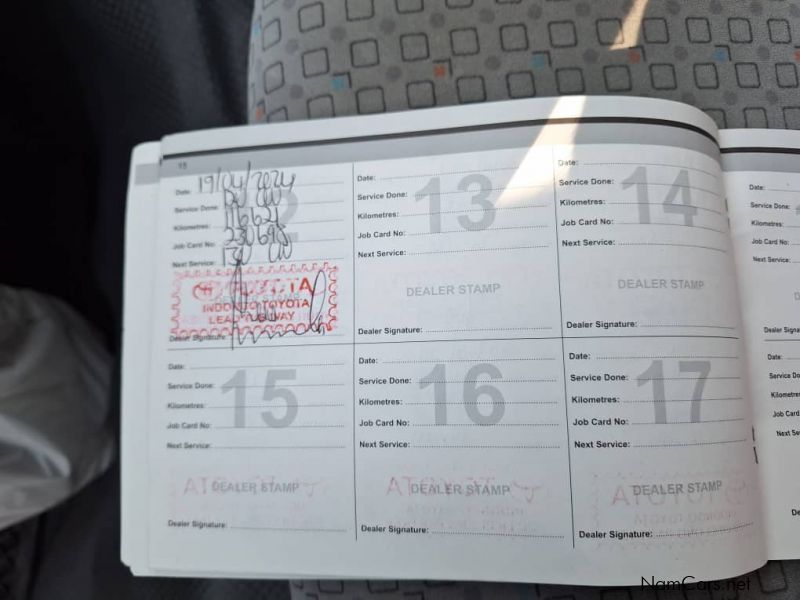 15
Date: 19/04/2024
Service Done:
Kilometres: 116621
Job Card No: 230698
Next Service:
TOYOTA
INDONGO TOYOTA
Dealer Signature:
Date:
Service Done:
13
Kilometres:
Job Card No:
Next Service:
DEALER STAMP
Dealer Signature:
Date:
Service Done:
14
Kilometres:
Job Card No:
Next Service:
DEALER STAMP
Dealer Signature:
Date:
Service Done:
15
Kilometres:
Job Card No:
Next Service:
DEALER STAMP
Dealer Signature:
Date:
Service Done:
16
Kilometres:
Job Card No:
Next Service:
DEALER STAMP
Dealer Signature:
Date:
Service Done:
17
Kilometres:
Job Card No:
Next Service:
DEALER STAMP
Dealer Signature:
Date:
Service Done:
Kilometres:
Job Card No:
Next Service:
Dealer Signature:
Date:
Service Do
Kilometres
Job Card No
Next Se
NamCars.net